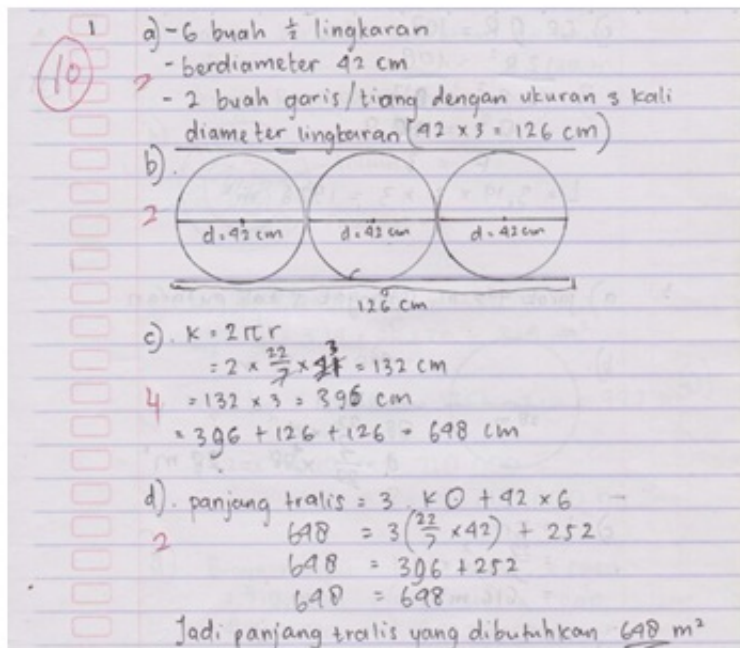 1 a) - 6 buah ½ lingkaran
10
2 - berdiameter 42 cm
- 2 buah garis/tiang dengan ukuran 3 kali
diameter lingkaran (42 × 3 = 126 cm)
b).
2
d = 42 cm d = 42 cm d = 42 cm
126 cm
c). K = 2πr
= 2 × 22/7 × 21 3 = 132 cm
4 = 132 × 3 = 396 cm
= 396 + 126 + 126 = 648 cm
d). panjang tralis = 3 . K O + 42 × 6
2 648 = 3 (22/7 × 42) + 252
648 = 396 + 252
648 = 648
Jadi panjang tralis yang dibutuhkan 648 m²